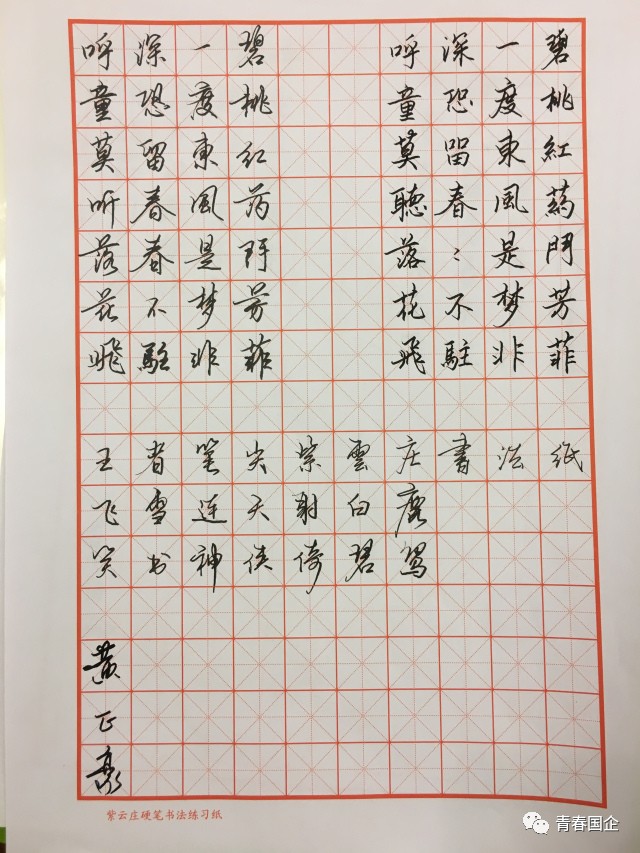 碧桃紅葯鬥芳菲
一度東風是梦非
深恐留春〻不駐
呼童莫聽落花飛
碧桃红药鬥芳菲
一度東風是梦非
深恐留春春不駐
呼童莫听落花飛
王者笔尖紫雲庄書法纸
飞雪连天射白鹿
笑书神侠倚碧鸳
黄正
紫云庄硬笔书法练习纸
青春国企